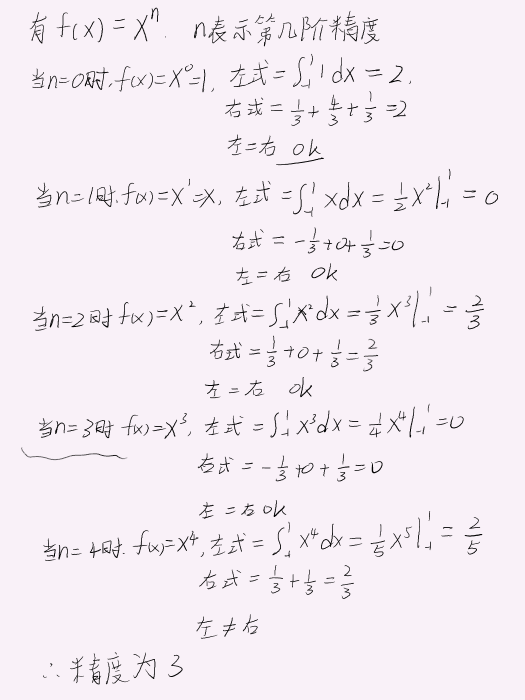 有 f(x) = xⁿ. n表示第几阶精度
当n=0时,f(x)=x⁰=1, 左式=∫₋₁¹ 1 dx = 2,
右式 = 1/3 + 4/3 + 1/3 = 2
左=右 ok
当n=1时,f(x)=x¹=x, 左式 =∫₋₁¹ xdx = 1/2 x²|₋₁¹ = 0
右式 = -1/3+0+1/3=0
左=右 ok
当n=2时 f(x)=x², 左式=∫₋₁¹ x²dx = 1/3 x³|₋₁¹ = 2/3
右式=1/3+0+1/3=2/3
左=右 ok
当n=3时 f(x)=x³, 左式 =∫₋₁¹ x³dx = 1/4 x⁴|₋₁¹=0
右式 = -1/3+0+1/3=0
左=右 ok
当n=4时. f(x)=x⁴,左式=∫₋₁¹ x⁴dx = 1/5 x⁵|₋₁¹ = 2/5
右式 = 1/3+1/3=2/3
左≠右
∴精度为3